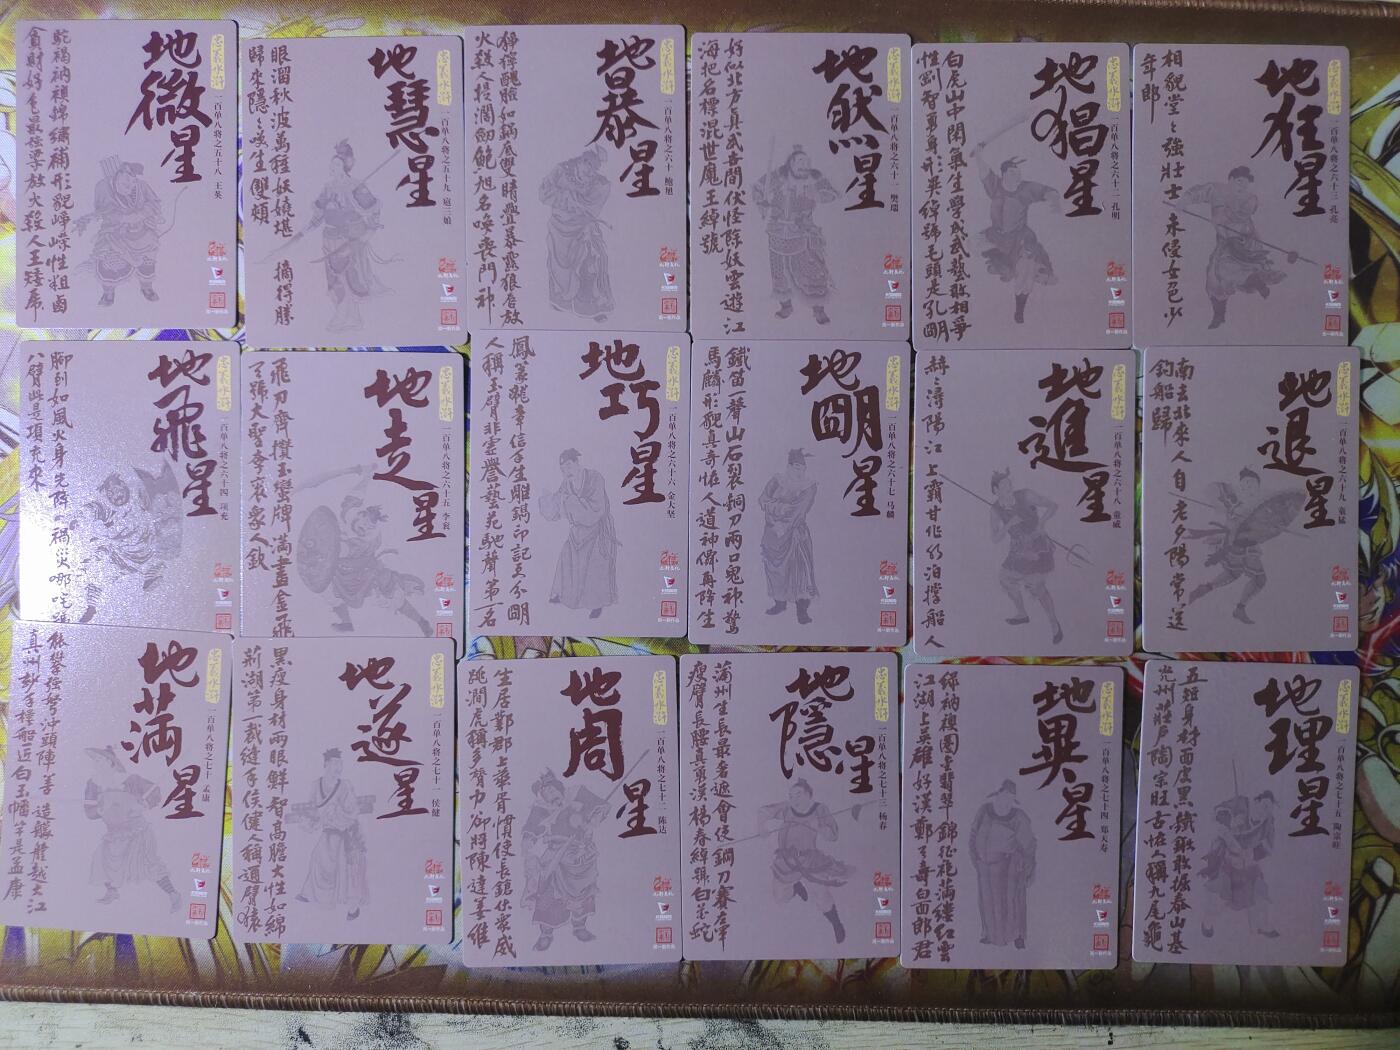 地微星
忠義水滸
一百单八将之五十八 王英
駝褐衲襖錦繡補形貌崢嶸性粗鹵
貪財好色最強梁放火殺人王矮虎
地慧星
忠義水滸
一百单八将之五十九 扈三娘
眼溜秋波萬種妖嬈堪 摘得勝
歸來隱〻笑生雙頰
地暴星
忠義水滸
一百单八将之六十 鲍旭
猙獰醜臉如鍋底雙睛疊暴露狼唇放
火殺人提闊劍鮑旭名喚喪門神
地然星
忠義水滸
一百单八将之六十一 樊瑞
好似北方真武世間伏怪除妖雲遊江
海把名標混世魔王綽號
地猖星
忠義水滸
一百单八将之六十二 孔明
白虎山中閑氣生學成武藝敢相爭
性剛智勇身形異綽號毛頭是孔明
地狂星
忠義水滸
一百单八将之六十三 孔亮
相貌堂〻強壯士未侵女色少
年郎
地飛星
忠義水滸
一百单八将之六十四 项充
腳到如風火身先降禍災哪吒號
八臂此是項充來
地走星
忠義水滸
一百单八将之六十五 李衮
飛刀齊攢玉蠻牌滿畫金飛
天號大聖李袞眾人欽
地巧星
忠義水滸
一百单八将之六十六 金大坚
鳳篆龍章信手生雕鐫印記更分明
人稱玉臂非虛譽藝苑馳聲第一名
地明星
忠義水滸
一百单八将之六十七 马麟
鐵笛一聲山石裂銅刀兩口鬼神驚
馬麟形貌真奇怪人道神仙再降生
地進星
忠義水滸
一百单八将之六十八 童威
赫〻潯陽江上霸甘作泊撐船人
地退星
忠義水滸
一百单八将之六十九 童猛
南去北來人自老夕陽常送
釣船歸
地满星
忠義水滸
一百单八将之七十 孟康
能攀強弩沖頭陣善造艨艟越大江
真州妙手樓船匠白玉幡竿是孟康
地遂星
忠義水滸
一百单八将之七十一 侯健
黑瘦身材兩眼鮮智高膽大性如綿
荊湖第一裁縫手侯健人稱通臂猿
地周星
忠義水滸
一百单八将之七十二 陈达
生居鄴郡上華胥慣使長鎗伏眾威
跳澗虎稱多膂力卻將陳達姜維
地隱星
忠義水滸
一百单八将之七十三 杨春
蒲州生長最奢遮會使鋼刀賽左車
瘦臂長腰真勇漢楊春綽號白花蛇
地異星
忠義水滸
一百单八将之七十四 郑天寿
綠衲襖圈金翡翠錦征袍滿縷紅雲
江湖上英雄好漢鄭天壽白面郎君
地理星
忠義水滸
一百单八将之七十五 陶宗旺
五短身材面皮黑鐵鍬敢掘泰山基
光州莊戶陶宗旺古怪人稱九尾龜